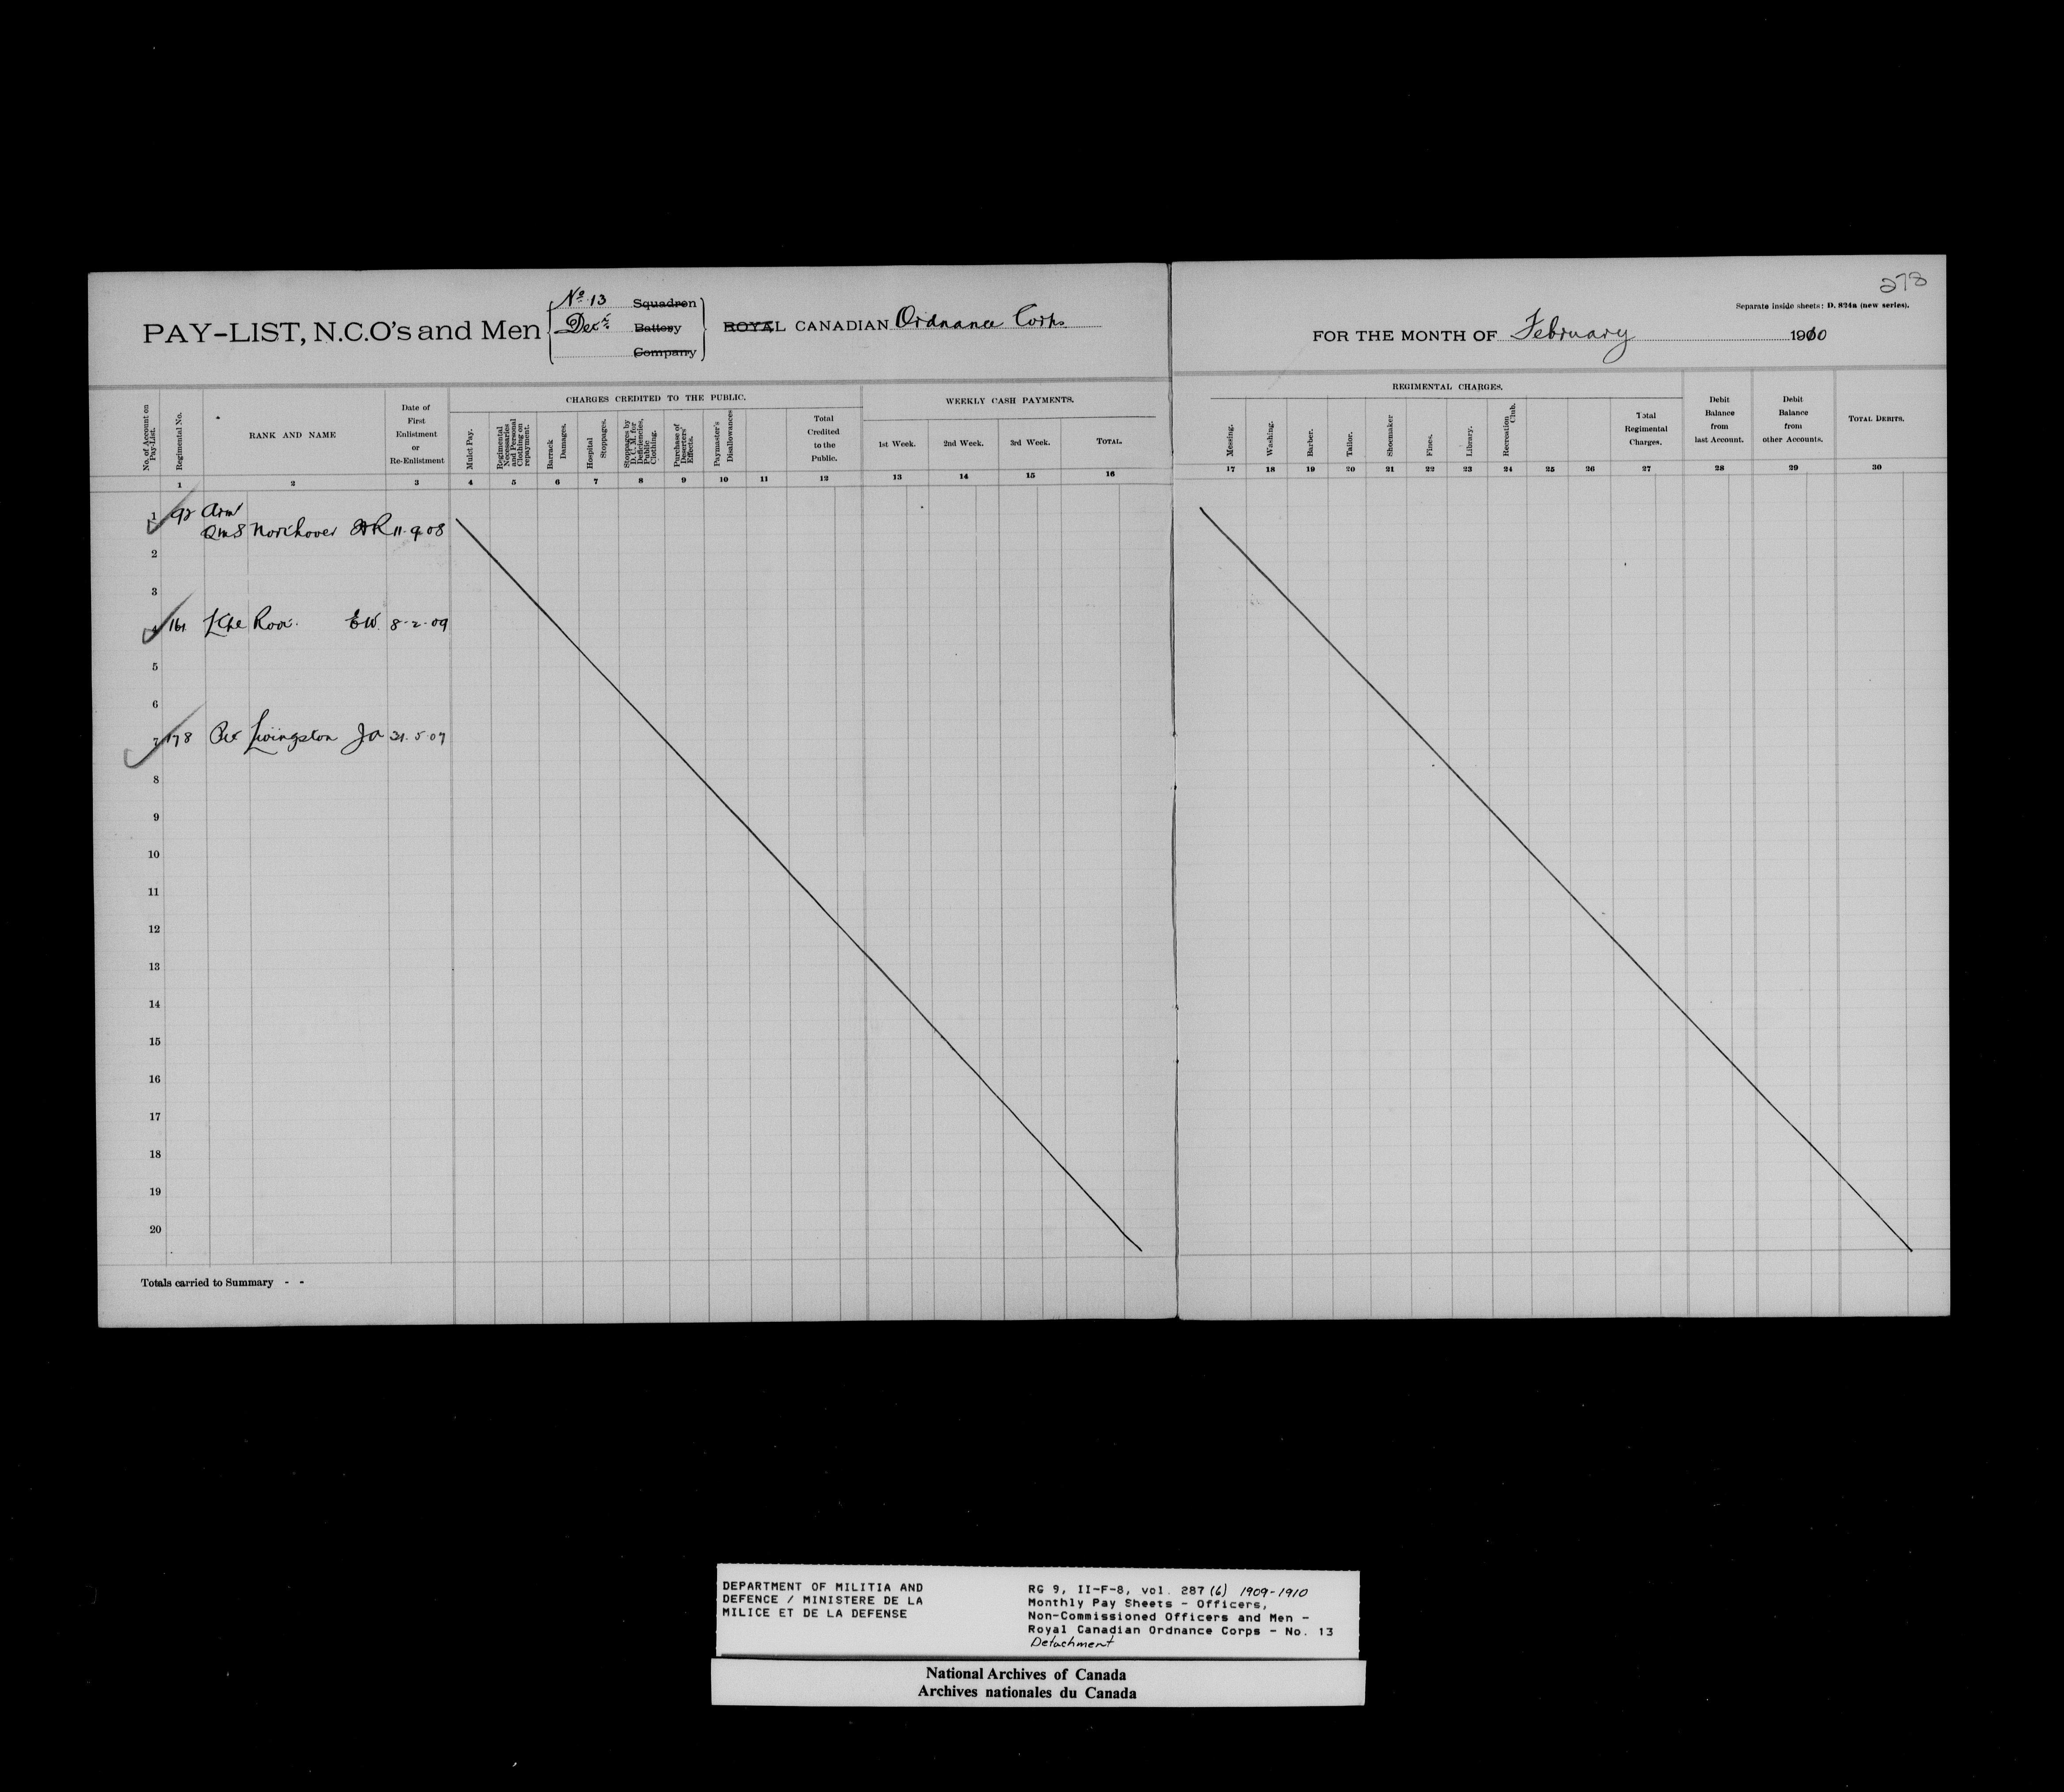 278
Separate inside sheets: D. 824a (new series).
PAY-LIST, N.C.O's and Men
No 13 Squadron
Det. Battery
Company
ROYAL CANADIAN Ordnance Corps
FOR THE MONTH OF February 1910
No. of Account on Pay-List.
Regimental No.
RANK AND NAME
Date of First Enlistment or Re-Enlistment
CHARGES CREDITED TO THE PUBLIC.
Mulct Pay.
Regimental Necessaries and Personal Clothing on repayment.
Barrack Damages.
Hospital Stoppages.
Stoppages by D. C. M. for Deficiencies, Public Clothing.
Purchase of Deserters' Effects.
Paymaster's Disallowances
Total Credited to the Public.
WEEKLY CASH PAYMENTS.
1st Week.
2nd Week.
3rd Week.
TOTAL.
REGIMENTAL CHARGES.
Messing.
Washing.
Barber.
Tailor.
Shoemaker
Fines.
Library.
Recreation Club.
Total Regimental Charges.
Debit Balance from last Account.
Debit Balance from other Accounts.
TOTAL DEBITS.
1 2 3 4 5 6 7 8 9 10 11 12 13 14 15 16 17 18 19 20 21 22 23 24 25 26 27 28 29 30
1 92 Arm
QmS Northover HR 11.9.08
2
3
4 161 EW. 8-2-09
5
6
7 178 Livingston Ja 31.5.07
8
9
10
11
12
13
14
15
16
17
18
19
20
Totals carried to Summary - -
DEPARTMENT OF MILITIA AND
DEFENCE / MINISTERE DE LA
MILICE ET DE LA DEFENSE
RG 9, II-F-8, vol. 287 (6) 1909-1910
Monthly Pay Sheets - Officers,
Non-Commissioned Officers and Men -
Royal Canadian Ordnance Corps - No. 13
Detachment
National Archives of Canada
Archives nationales du Canada